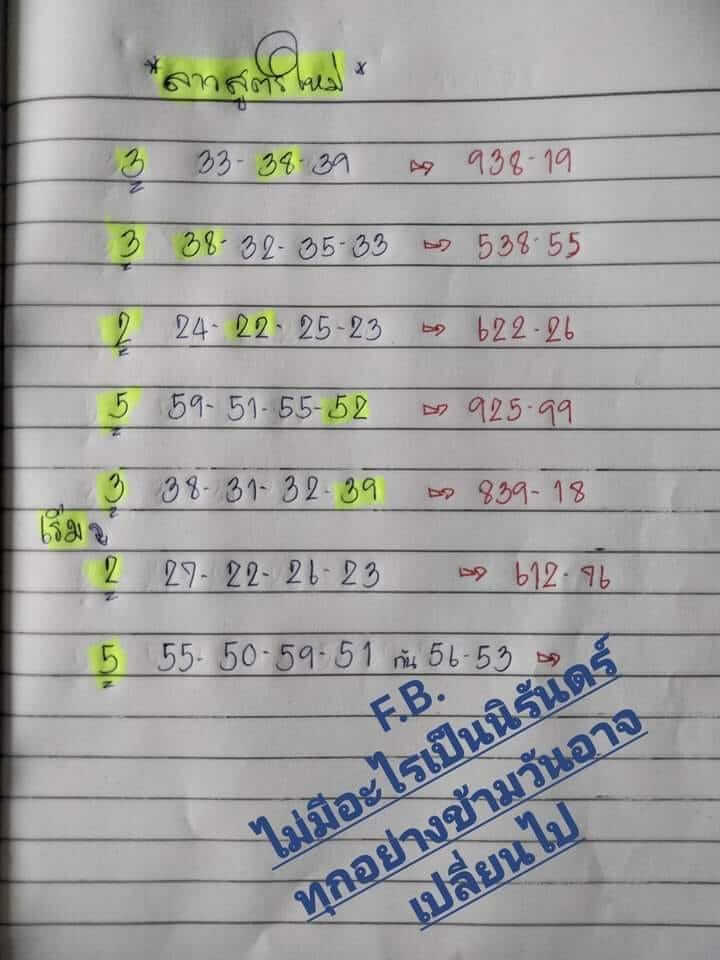 *ลาวสูตรใหม่*
3 33-38-39 ⇨ 938-19
3 38-32-35-33 ⇨ 538-55
2 24-22-25-23 ⇨ 622-26
5 59-51-55-52 ⇨ 925-99
3 38-31-32-39 ⇨ 839-18
เริ่ม
2 27-22-26-23 ⇨ 612-96
5 55-50-59-51 กัน 56-53 ⇨
F.B.
ไม่มีอะไรเป็นนิรันดร์
ทุกอย่างข้ามวันอาจ
เปลี่ยนไป